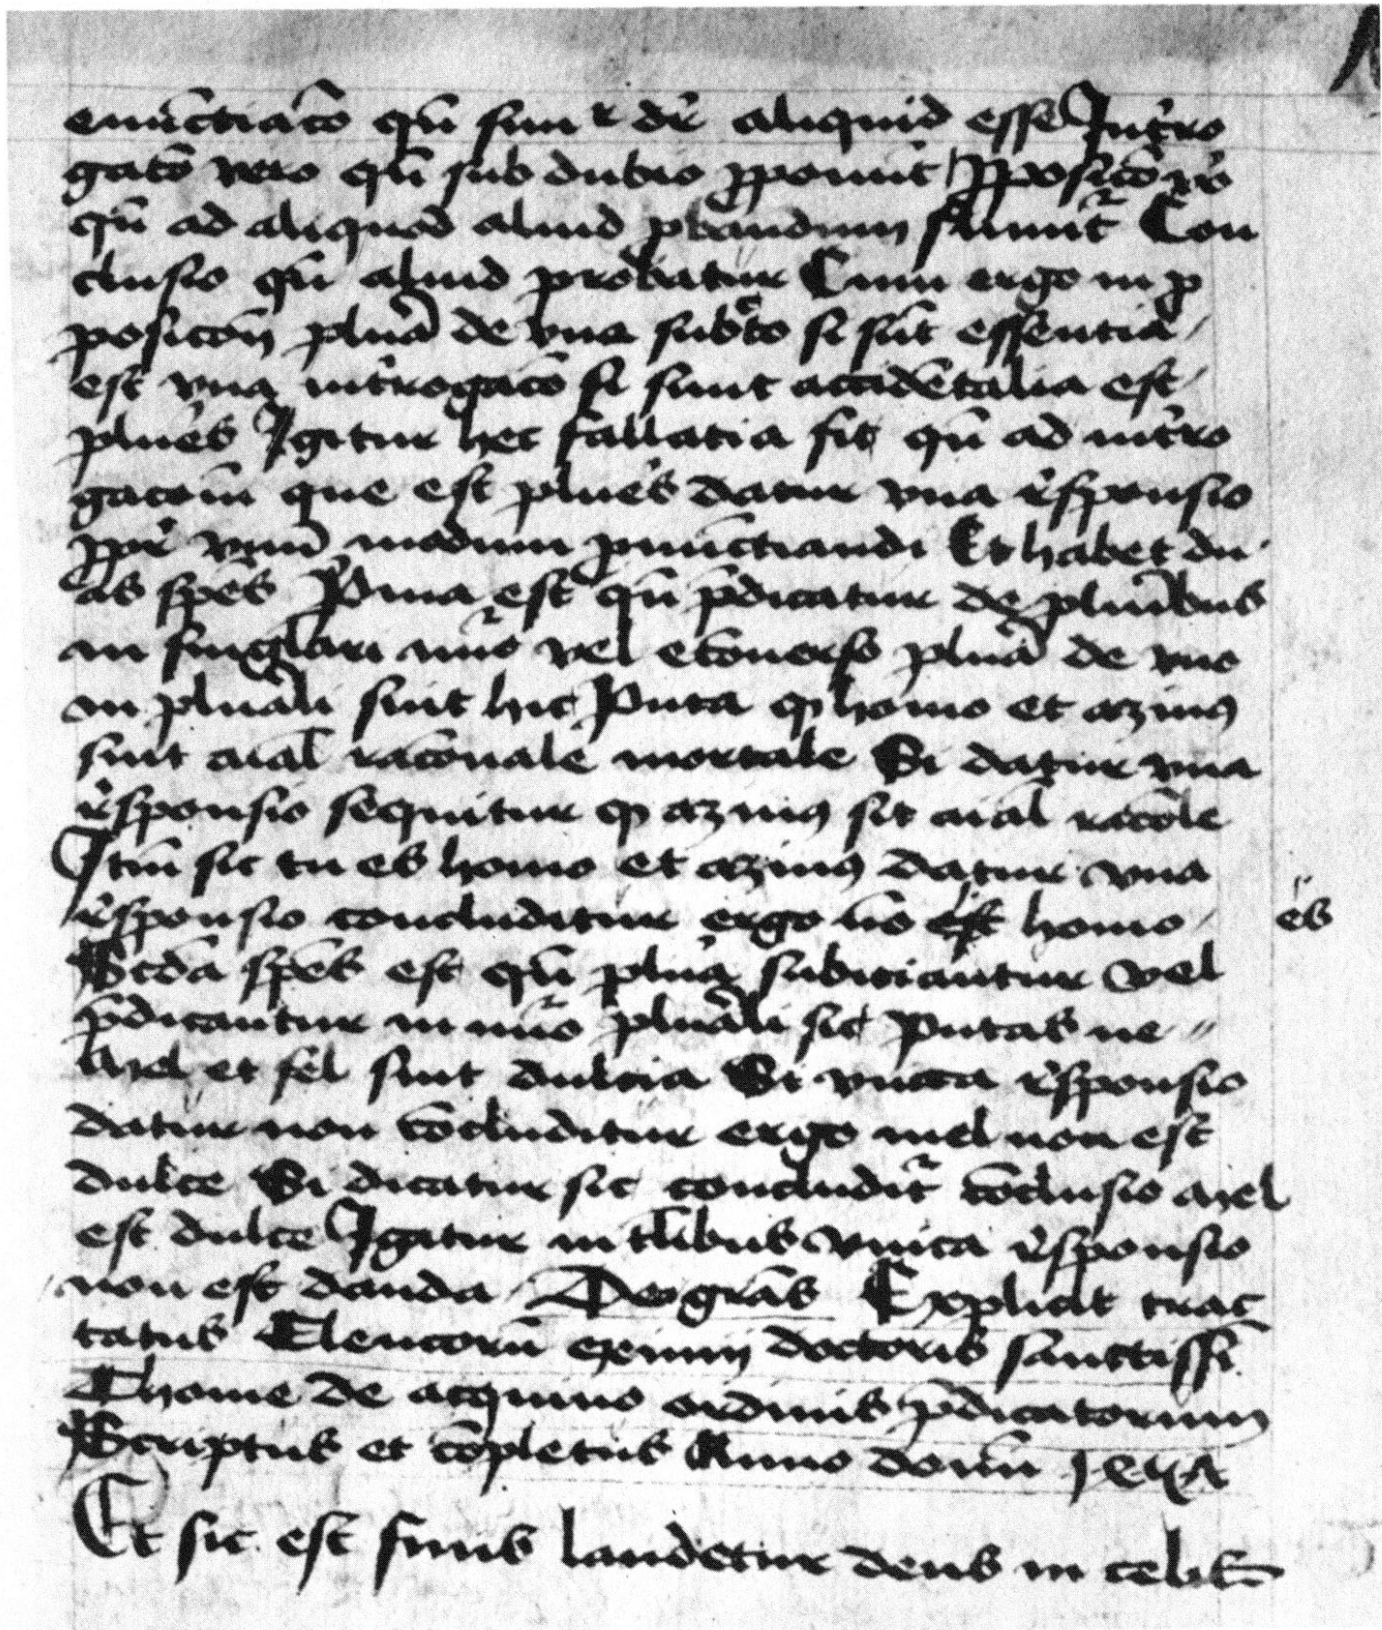 enūctiacō qn̄ simꝉr dr̄ aliquid esse Int̉ro
gatō vero qn̄ sub dubio ꝓponit͛ Ꝓposicō v̉o
qn̄ ad aliquod aliud ꝓbandum sumit͛ Con
clusio qn̄ aliud probatur Cum ergo in ꝓ
posicōn plura̅ de vna sub̅to si sūt essentia̅
est vna int̉rogacō si sunt accidētalia est
plures Igitur hec fallatia fit qn̄ ad int̉ro
gacōm que est plures datur vna r̉sponsio
ꝓpt̉ vnu̅ modum ꝓnūctiandi Et habet du
as spēs Prima est qn̄ p̄dicatur de pluribus
in singlari nūo vel ecōuerso plura̅ de vno
in plurali sint hic Puta ꝙ homo et azinꝰ
sint aīal racōnale mortale Si datur vna
r̉sponsio sequitur ꝙ azinꝰ sit aīal racōle
Itm̄ sic tu es homo et azinꝰ datur vna
r̉sponsio concluditur ergo nō est homo es
Scd̄a spēs est qn̄ plura subiciantur vel
p̄dicantur in nūo plurali sic Putas ne
Mel et fel sint dulcia Si vnica r̉sponsio
datur non cōcluditur ergo mel non est
dulce Si dicatur sic concludit͛ cōclusio mel
est dulce Igitur in tlibus vnica r̉sponsio
non est danda Deo grās Explicit trac
tatus Elencorū eximij doctoris sanctissi
Thome de acquino ordinis p̄dicatorum
Scriptus et cōpletus Anno domī
Et sic est finis laudetur deus in celis